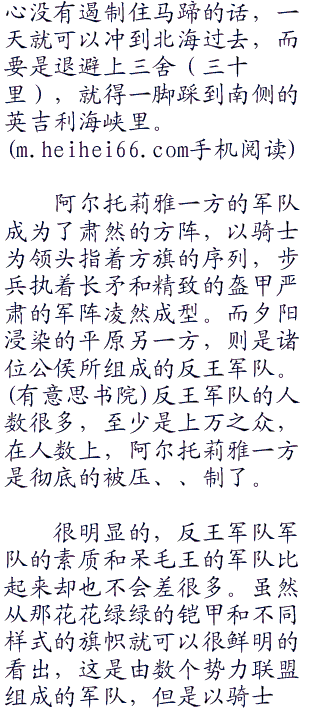 心没有遏制住马蹄的话，一
天就可以冲到北海过去，而
要是退避上三舍（三十
里），就得一脚踩到南侧的
英吉利海峡里。
(m.heihei66.com手机阅读)
阿尔托莉雅一方的军队
成为了肃然的方阵，以骑士
为领头指着方旗的序列，步
兵执着长矛和精致的盔甲严
肃的军阵凌然成型。而夕阳
浸染的平原另一方，则是诸
位公侯所组成的反王军队。
(有意思书院)反王军队的人
数很多，至少是上万之众，
在人数上，阿尔托莉雅一方
是彻底的被压、、制了。
很明显的，反王军队军
队的素质和呆毛王的军队比
起来却也不会差很多。虽然
从那花花绿绿的铠甲和不同
样式的旗帜就可以很鲜明的
看出，这是由数个势力联盟
组成的军队，但是以骑士